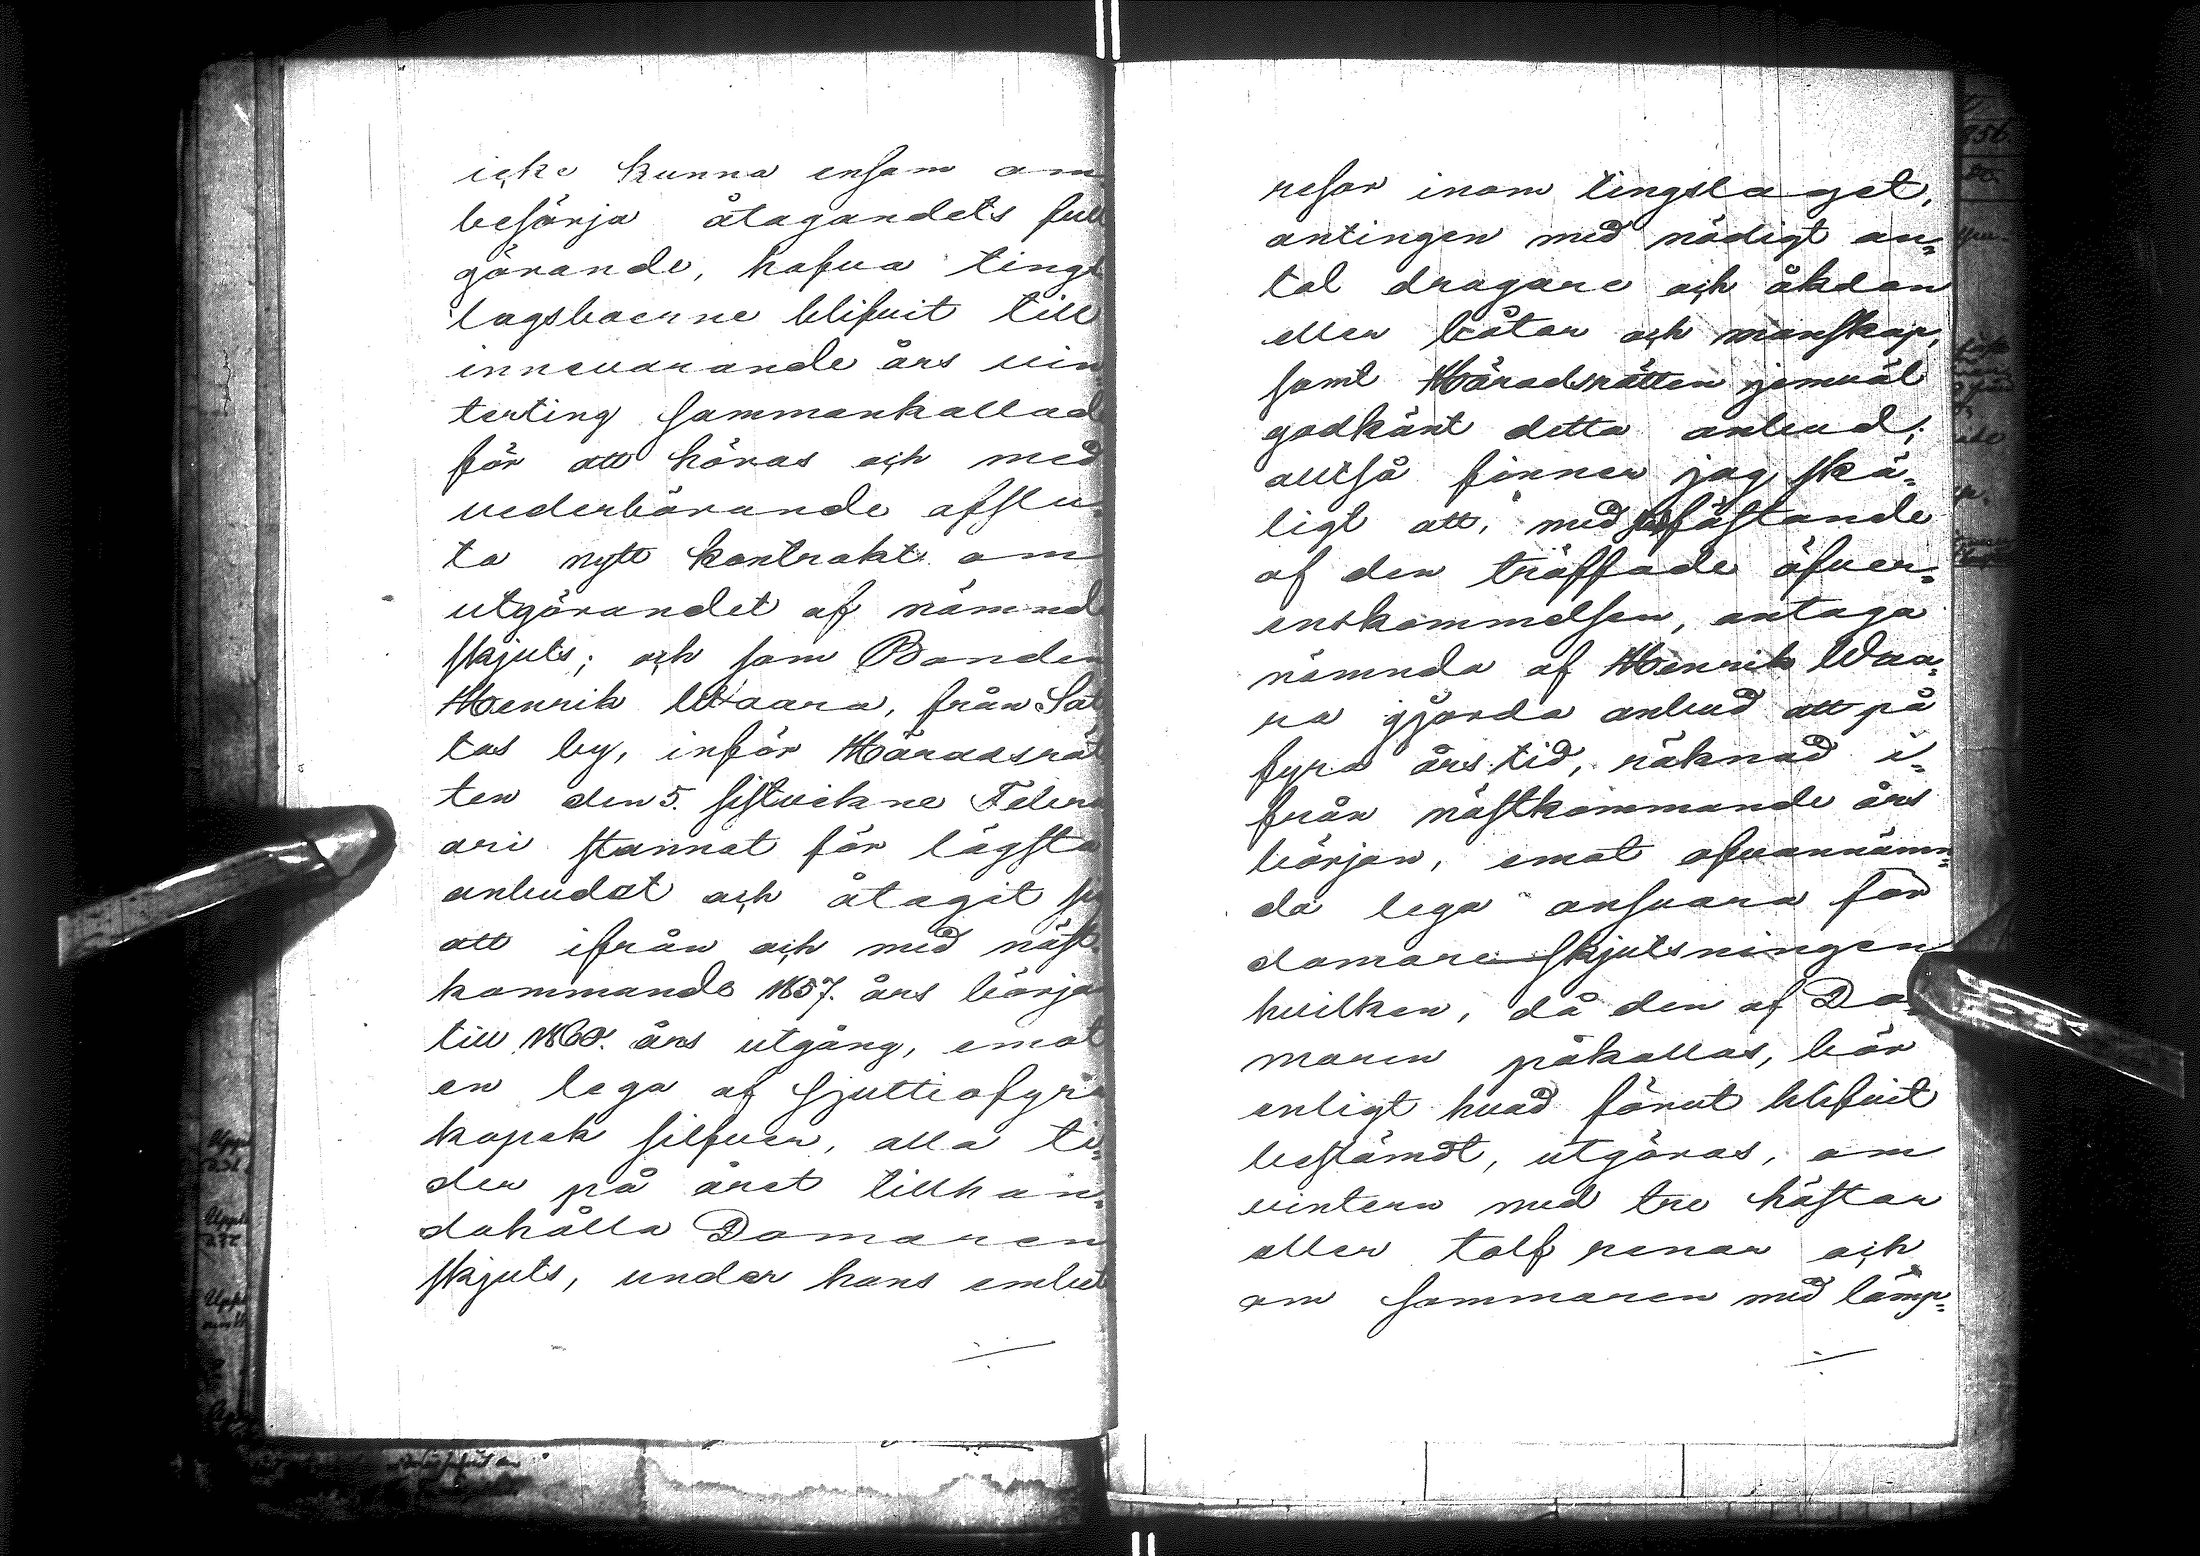 icke kunna ensam om
besörja åtagandets full
görande, hafva tings
lagsboerne blifvit till
innevarande års vin
terting sammankallad
för att höras och med
vederbörande afslu-
ta nytt kontrakt om
utgörandet af nämnd
skjuts; och som Bonden
Henrik Waara, från Sat
tas by, inför Häradsrät
ten den 5. sistvickne Febru
ari stannat för lägsta
anbudet och åtagit si
att ifrån och med näst-
kommande 1857. års börja
till 1860. års utgång, emot
en lega af sjuttiofyra
kopek silfver, alla ti-
der på året tillhan-
dahålla Domaren
skjuts, under hans embet
resor inom tingslaget,
antingen med nödigt an-
tal dragare och åkdon
eller båtar och manskap,
samt Häradsrätten jemväl
godkänt detta anbud;
alltså finner jag skä-
ligt att, med fästande
af den träffade öfver-
enskommelsen, antaga
nämnda af Henrik Waa-
ra gjorda anbud att på
fyra års tid, räknad i-
från nästkommande års
början, emot ofvannämn-
da lega ansvara för
domare skjutsningen
hvilken, då den af Do-
maren påkallas, bör
enligt hvad förut blifvit
bestämdt, utgöras, om
vintern med tre hästar
eller tolf renar och
om sommaren med lämp-